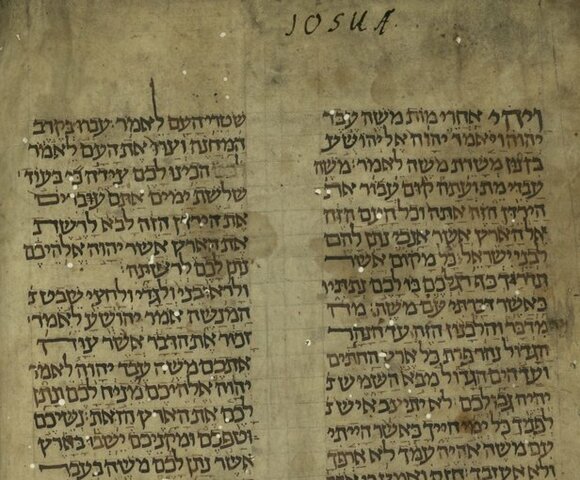 IOSUA.
ויהי אחרי מות משה עבד
יהוה ויאמר יהוה אל יהושע
בן נון משרת משה לאמר׃ משה
עבדי מת ועתה קום עבור את
הירדן הזה אתה וכל העם הזה
אל הארץ אשר אנכי נתן להם
לבני ישראל׃ כל מקום אשר
תדרך כף רגלכם בו לכם נתתיו
כאשר דברתי עם משה׃ מה
מדבר והלבנון הזה עד הנהר
הגדול נהר פרת כל ארץ החתים
ועד הים הגדול מבא השמש
יהיה גבולכם׃ לא יתיצב איש
לפניך כל ימי חייך כאשר הייתי
עם משה אהיה עמך לא ארפך
ולא אעזבך׃ חזק ואמץ כי
שטרי העם לאמר׃ עברו בקרב
המחנה וצוו את העם לאמר
הכינו לכם צידה כי בעוד
שלשת ימים אתם עברים
את הירדן הזה לבא לרשת
את הארץ אשר יהוה אלהיכם
נתן לכם לרשתה׃
ולראובני ולגדי ולחצי שבט
המנשה אמר יהושע לאמר׃
זכור את הדבר אשר צוה
אתכם משה עבד יהוה לאמר
יהוה אלהיכם מניח לכם ונתן
לכם את הארץ הזאת׃ נשיכם
וטפכם ומקניכם ישבו בארץ
אשר נתן לכם משה בעבר